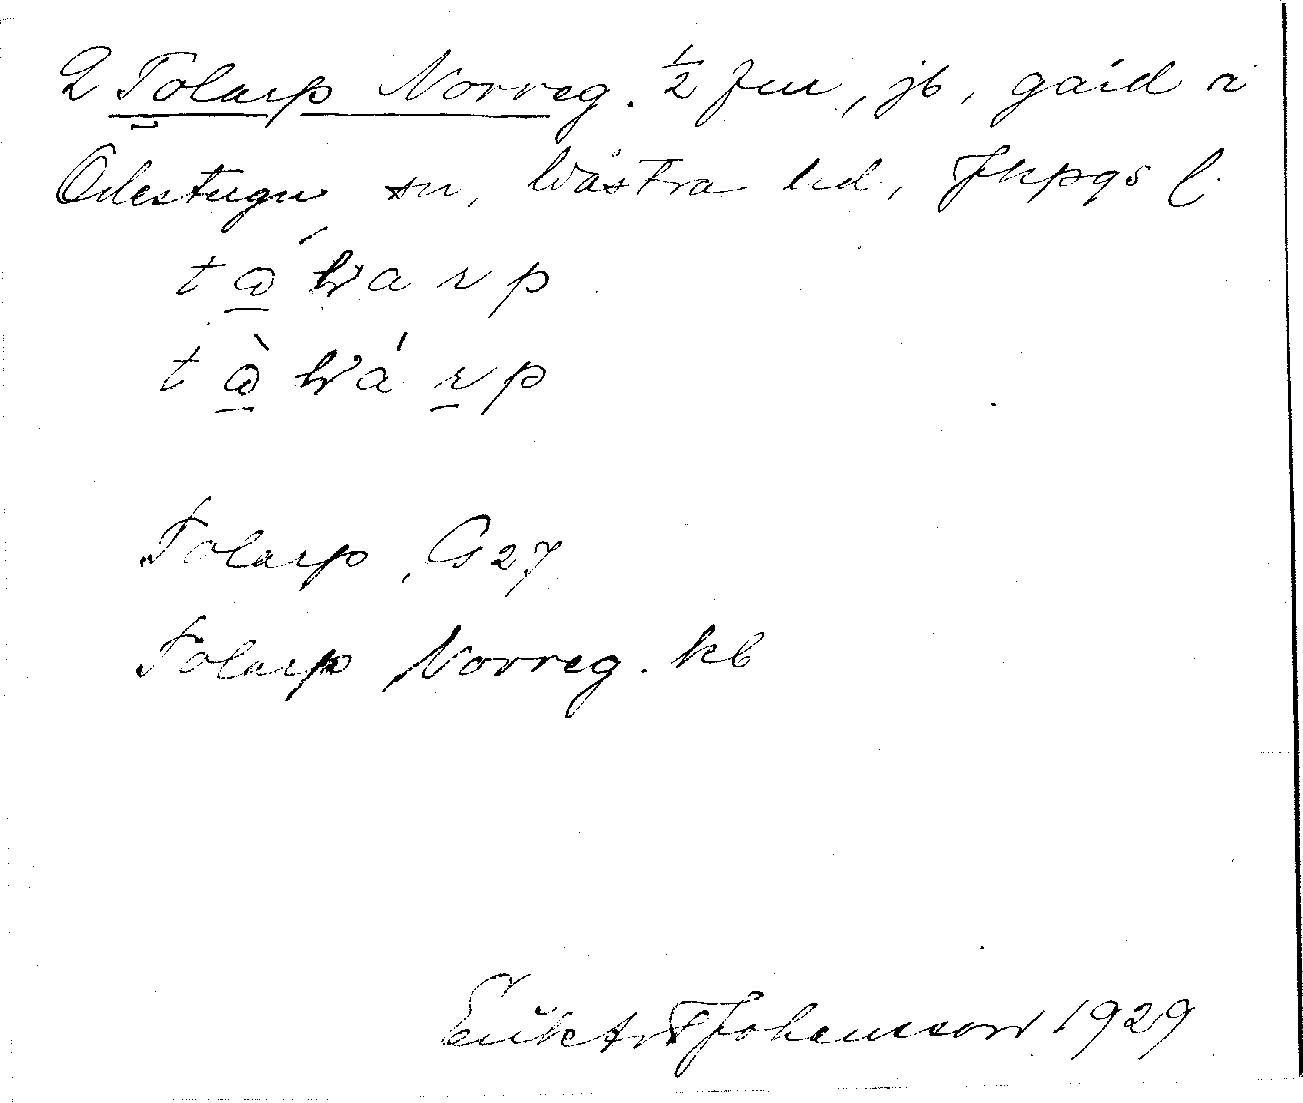 2 Tolarp Norreg. ½ fm, jb, gård i
Ödestugu sn, Västra hd, Jkpgs l.
Tolarp, G27
Tolarp Norreg. kb
Erik Artur Johansson 1929